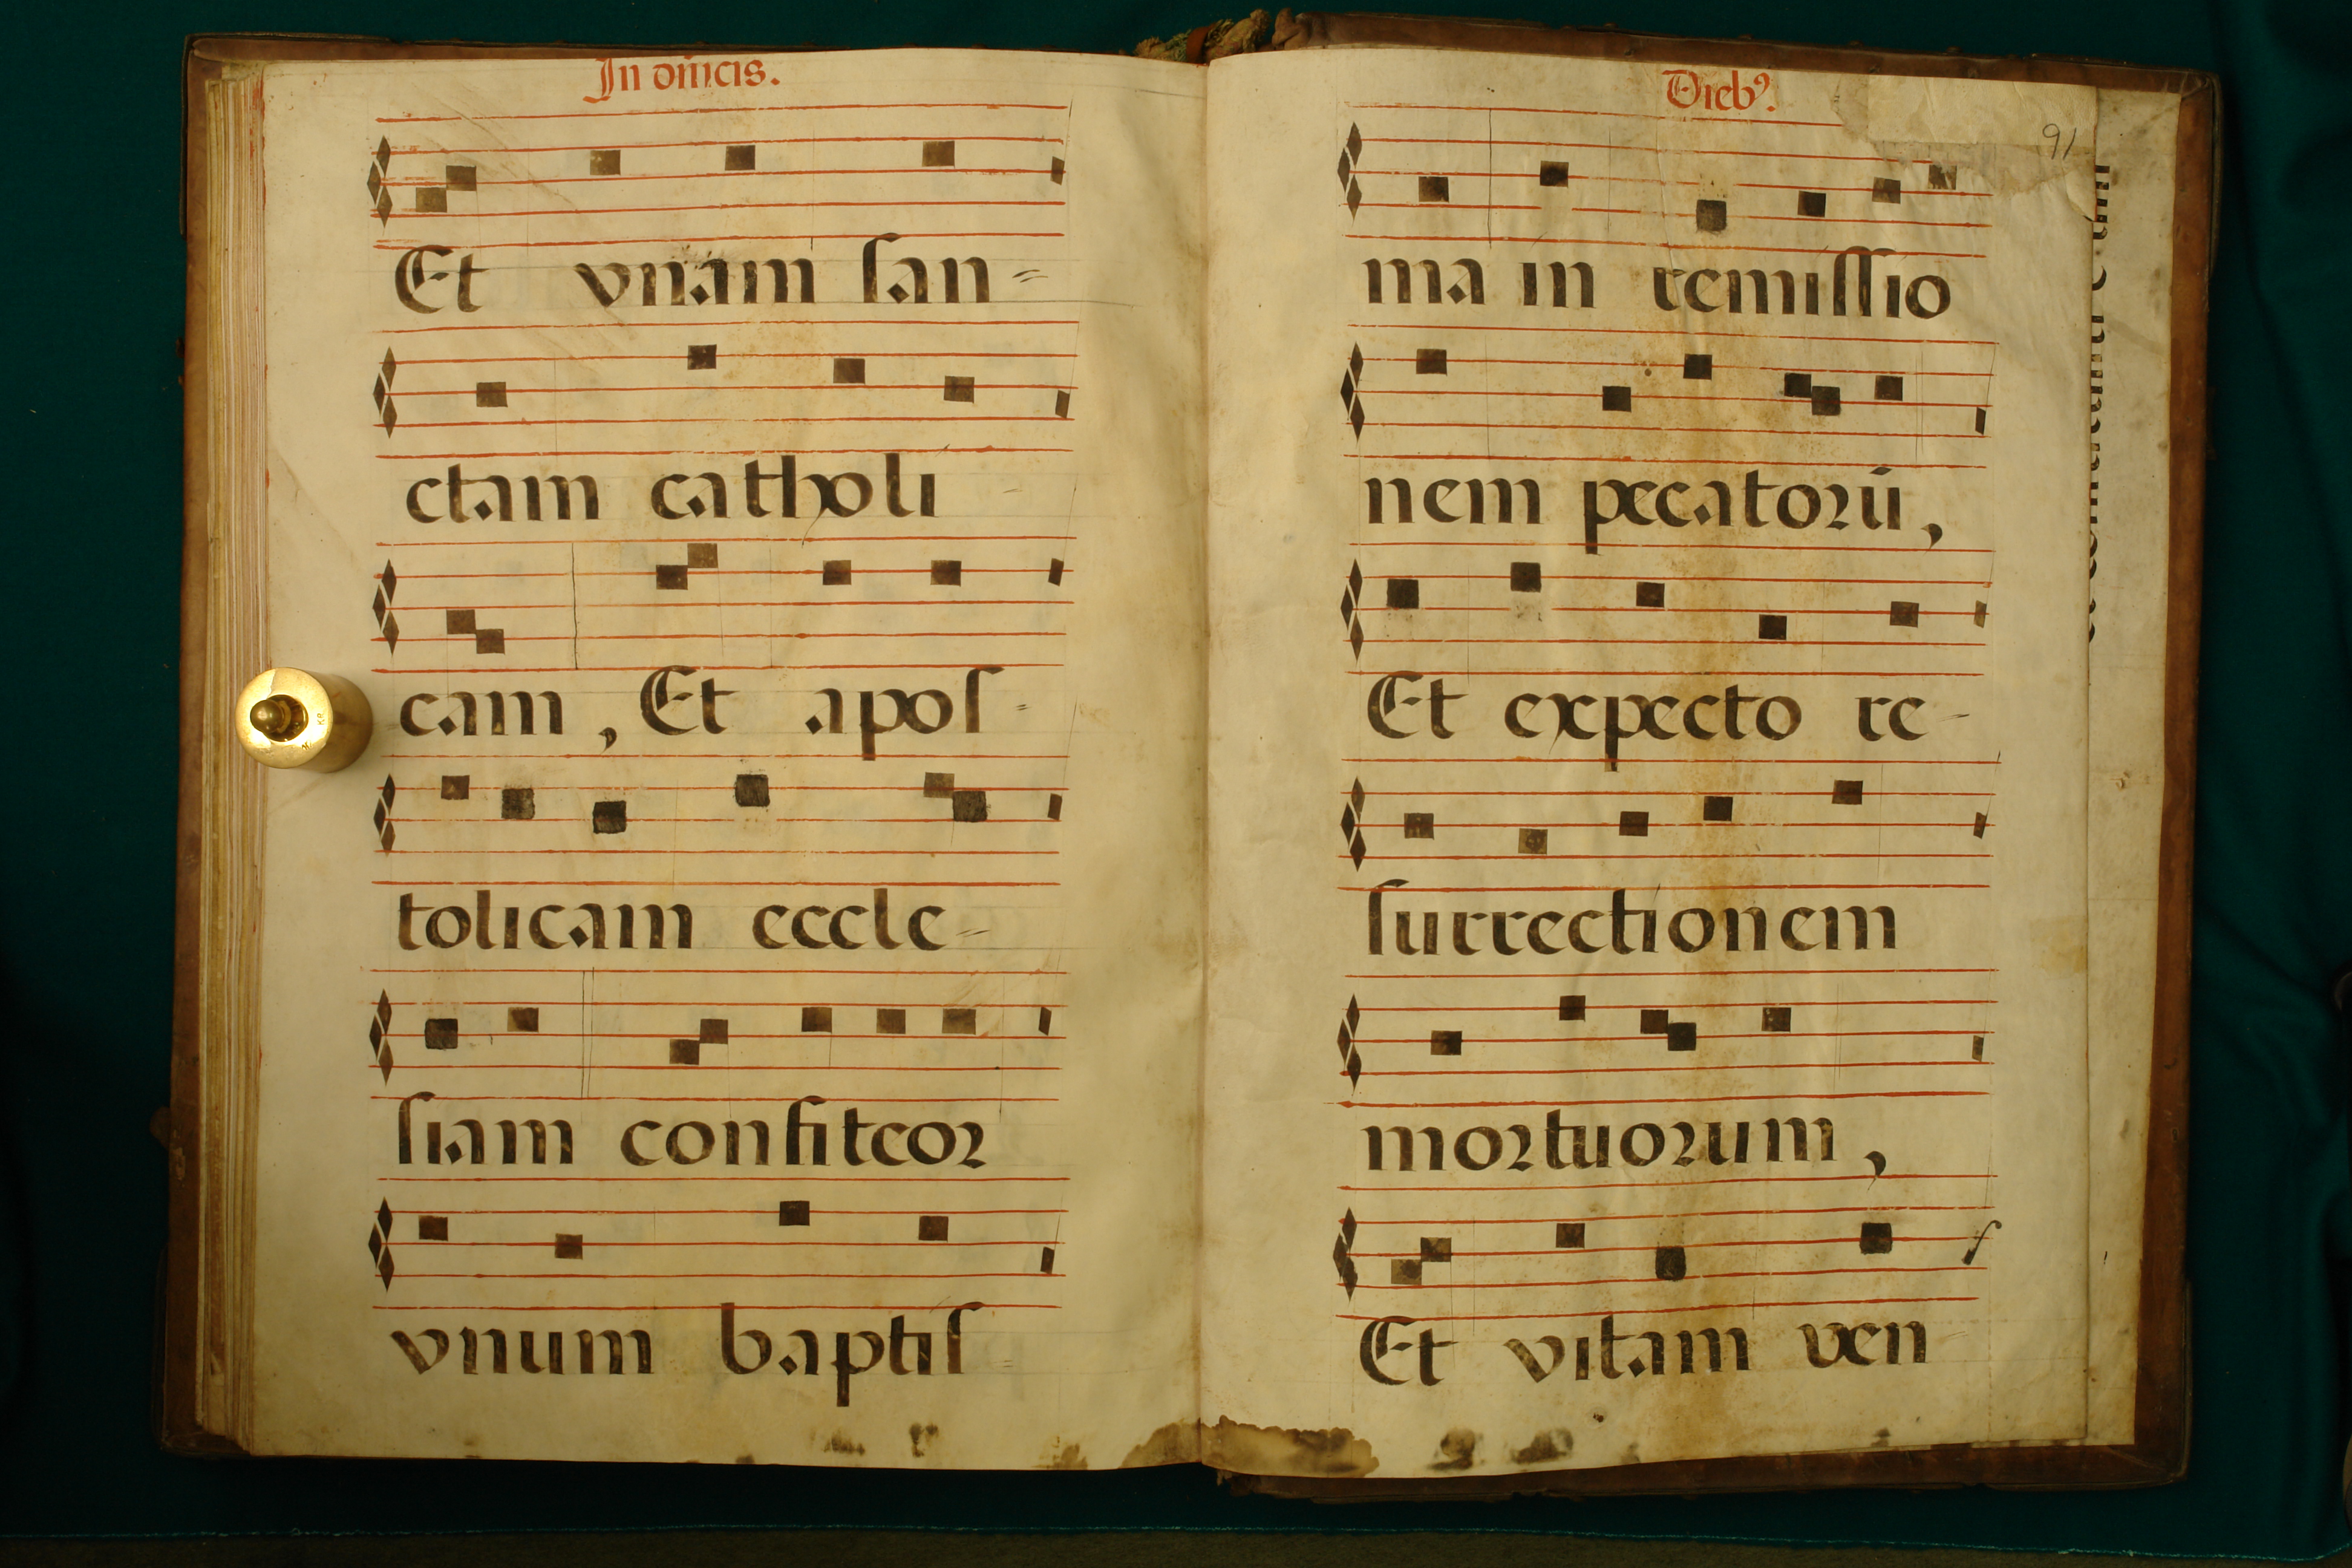 In dn̄icis.
Et vnam san-
ctam catholi-
cam, Et apos-
tolicam eccle-
siam confiteor
vnum baptis-
Dieb9.
91
ma in remissio
nem pecatorū,
Et expecto re-
surrectionem
mortuorum,
Et vitam ven